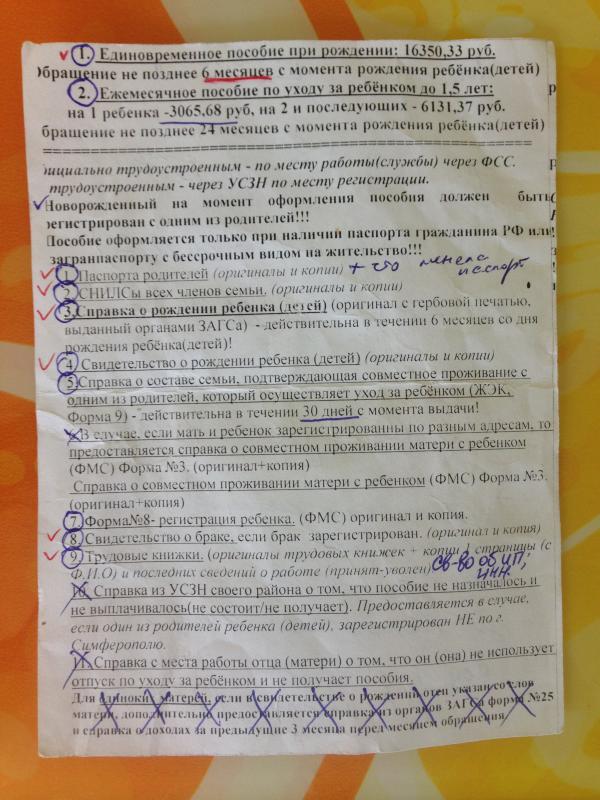 1. Единовременное пособие при рождении: 16350,33 руб.
Обращение не позднее 6 месяцев с момента рождения ребёнка(детей)
2. Ежемесячное пособие по уходу за ребёнком до 1,5 лет:
на 1 ребенка -3065,68 руб, на 2 и последующих - 6131,37 руб.
бращение не позднее 24 месяцев с момента рождения ребёнка(детей)
ициально трудоустроенным - по месту работы(службы) через ФСС.
трудоустроенным - через УСЗН по месту регистрации.
Новорожденный на момент оформления пособия должен быть
регистрирован с одним из родителей!!!
Пособие оформляется только при наличии паспорта гражданина РФ или
загранпаспорту с бессрочным видом на жительство!!!
1. Паспорта родителей (оригиналы и копии) + что меняла паспорт
2. СНИЛСы всех членов семьи. (оригиналы и копии)
3. Справка о рождении ребенка (детей) (оригинал с гербовой печатью,
выданный органами ЗАГСа) - действительна в течении 6 месяцев со дня
рождения ребёнка(детей)!
4. Свидетельство о рождении ребенка (детей) (оригиналы и копии)
5. Справка о составе семьи, подтверждающая совместное проживание с
одним из родителей, который осуществляет уход за ребёнком (ЖЭК,
Форма 9) - действительна в течении 30 дней с момента выдачи!
В случае, если мать и ребенок зарегистрированны по разным адресам, то
предоставляется справка о совместном проживании матери с ребенком
(ФМС) Форма №3. (оригинал+копия)
Справка о совместном проживании матери с ребенком (ФМС) Форма №3.
(оригинал+копия)
7. Форма№8- регистрация ребенка. (ФМС) оригинал и копия.
8. Свидетельство о браке, если брак зарегистрирован. (оригинал и копия)
9. Трудовые книжки. (оригиналы трудовых книжек + копии 1 страницы (с
Ф.И.О) и последних сведений о работе (принят-уволен) св-во об ИП, ИНН.
10. Справка из УСЗН своего района о том, что пособие не назначалось и
не выплачивалось(не состоит/не получает). Предоставляется в случае,
если один из родителей ребенка (детей), зарегистрирован НЕ по г.
Симферополю.
11. Справка с места работы отца (матери) о том, что он (она) не использует
отпуск по уходу за ребёнком и не получает пособия.
Для одиноких матерей, если в свидетельстве о рождении отец указан со слов
матери, дополнительно предоставляется справка из органов ЗАГСа форма №25
и справка о доходах за предыдущие 3 месяца перед месяцем обращения